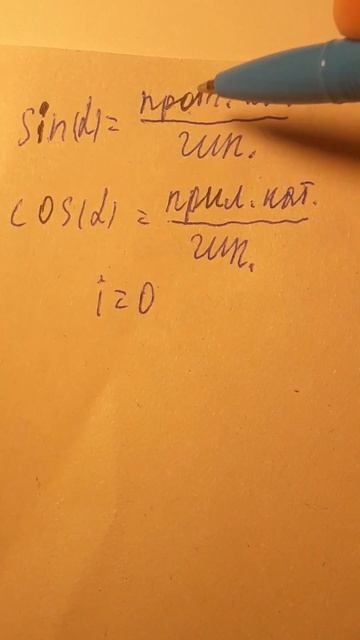 sin(α) = прот.
гип.
cos(α) = прил. кат.
гип.
i = 0